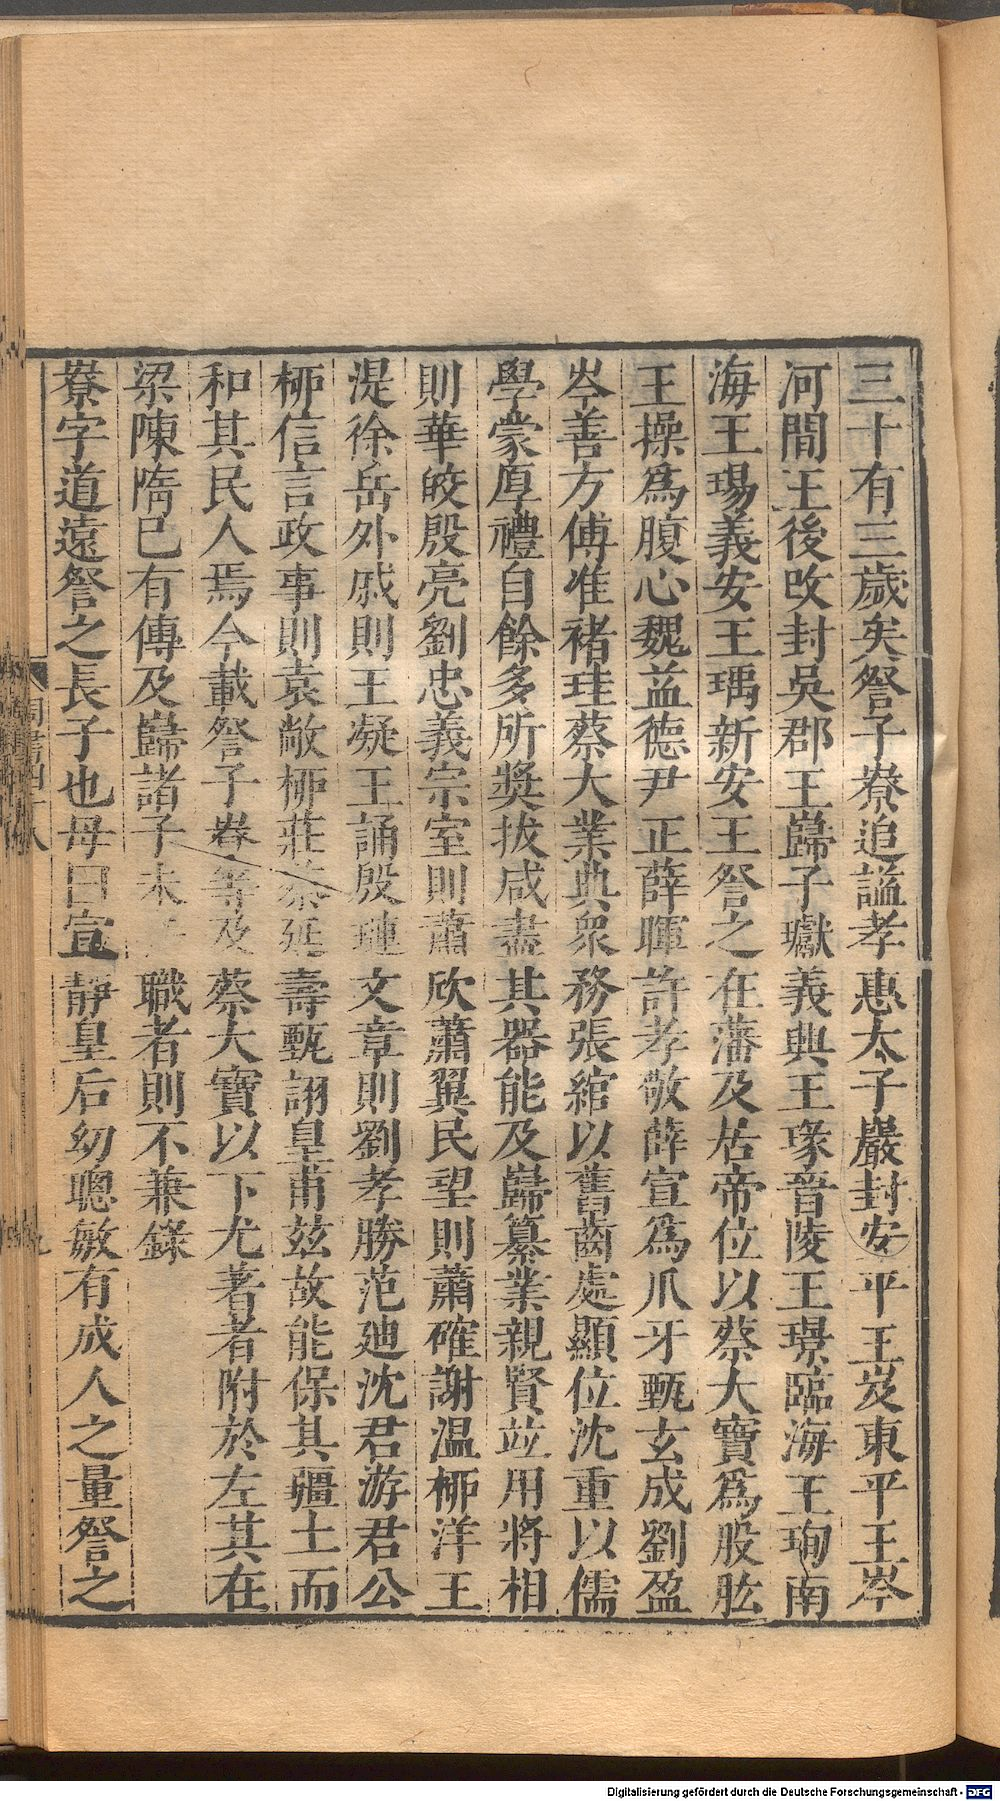 三十有三歲矣詧子嶚追謚孝惠太子巖封安平王岌東平王岑
河間王後改封吳郡王巋子瓛義興王瑑晉陵王璟臨海王珣南
海王瑒義安王瑀新安王詧之在藩及居帝位以蔡大寶爲股肱
王操爲腹心魏益德尹正薛暉許孝敬薛宣爲爪牙甄玄成劉盈
岑善方傅准褚珪蔡大業典衆務張綰以舊齒處顯位沈重以儒
學蒙厚禮自餘多所奬拔咸盡其器能及巋纂業親賢竝用將相
則華皎殷亮劉忠義宗室則蕭欣蕭翼民望則蕭確謝温栁洋王
湜徐岳外戚則王凝王誦殷璉文章則劉孝勝范廸沈君游君公
栁信言政事則袁敞栁莊蔡延壽甄詡皇甫兹故能保其疆土而
和其民人焉今載詧子嶚等及蔡大寶以下尤著者附於左其在
梁陳隋已有傳及巋諸子未職者則不兼錄
嶚字道遠詧之長子也母曰宣靜皇后幼聰敏有成人之量詧之
周書四十八
九
Digitalisierung gefördert durch die Deutsche Forschungsgemeinschaft - DFG